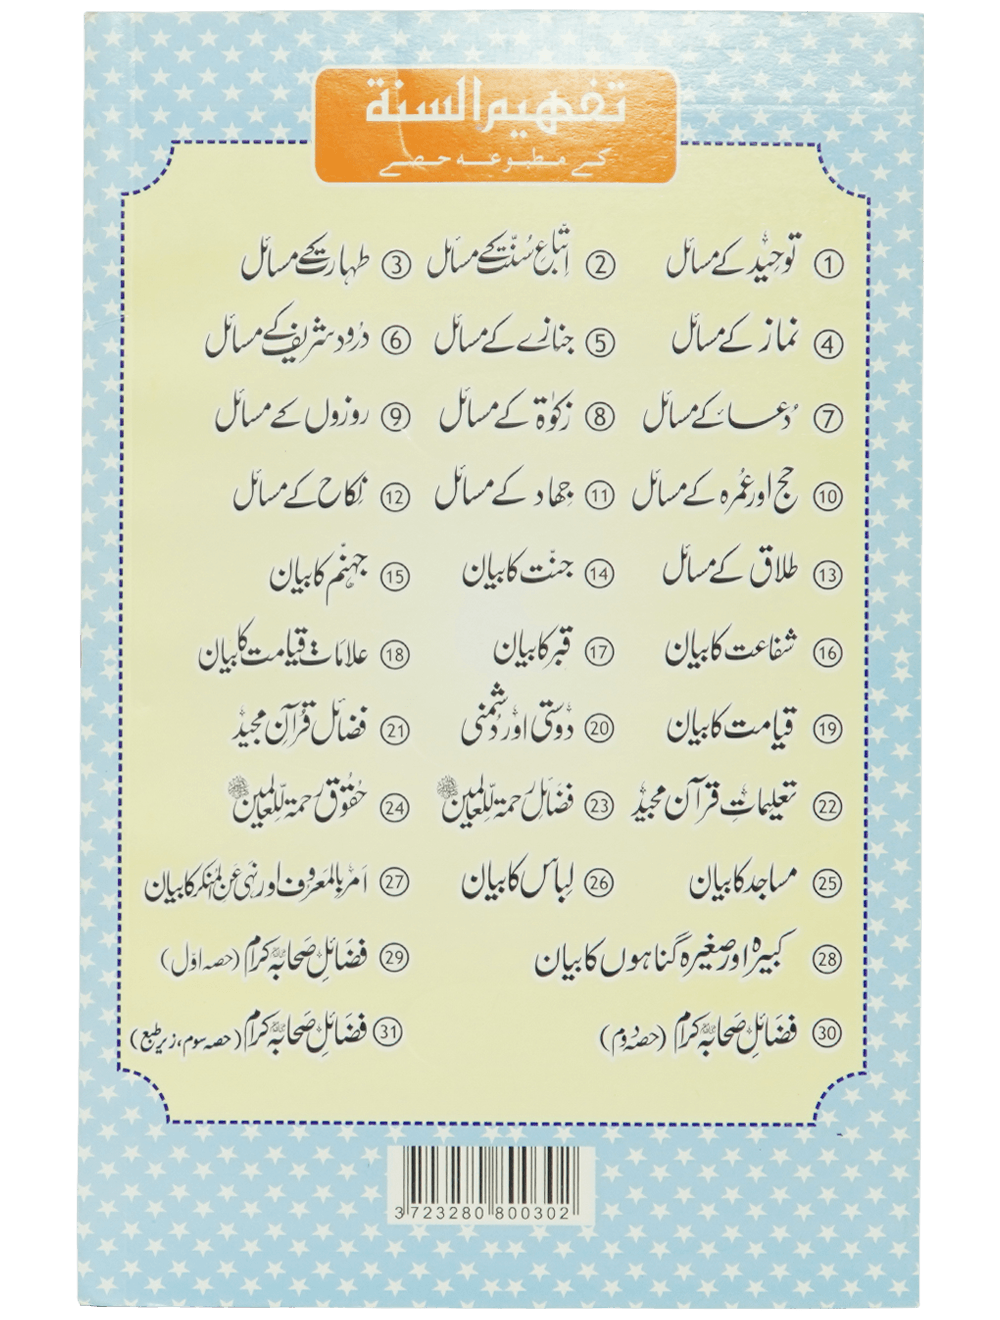 تفہیم السنۃ
کے مطبوعہ حصے
① توحید کے مسائل ② اتباع سنت کے مسائل ③ طہارت کے مسائل
④ نماز کے مسائل ⑤ جنازے کے مسائل ⑥ درود شریف کے مسائل
⑦ دُعاء کے مسائل ⑧ زکوٰۃ کے مسائل ⑨ روزوں کے مسائل
⑩ حج اور عُمرہ کے مسائل ⑪ جہاد کے مسائل ⑫ نکاح کے مسائل
⑬ طلاق کے مسائل ⑭ جنّت کا بیان ⑮ جہنّم کا بیان
⑯ شفاعت کا بیان ⑰ قبر کا بیان ⑱ علامات قیامت کا بیان
⑲ قیامت کا بیان ⑳ دوستی اور دُشمنی ㉑ فضائل قُرآن مجید
㉒ تعلیماتِ قرآن مجید ㉓ فضائل رحمۃ للعالمین ﷺ ㉔ حُقوق رحمۃ للعالمین ﷺ
㉕ مساجد کا بیان ㉖ لباس کا بیان ㉗ امر بالمعروف اور نہی عن المنکر کا بیان
㉘ کبیرہ اور صغیرہ گناہوں کا بیان ㉙ فضائلِ صحابہ کرام (حصہ اوّل)
㉚ فضائلِ صحابہ کرام (حصہ دوم) ㉛ فضائلِ صحابہ کرام (حصہ سوم، زیر طبع)
3 723280 800302